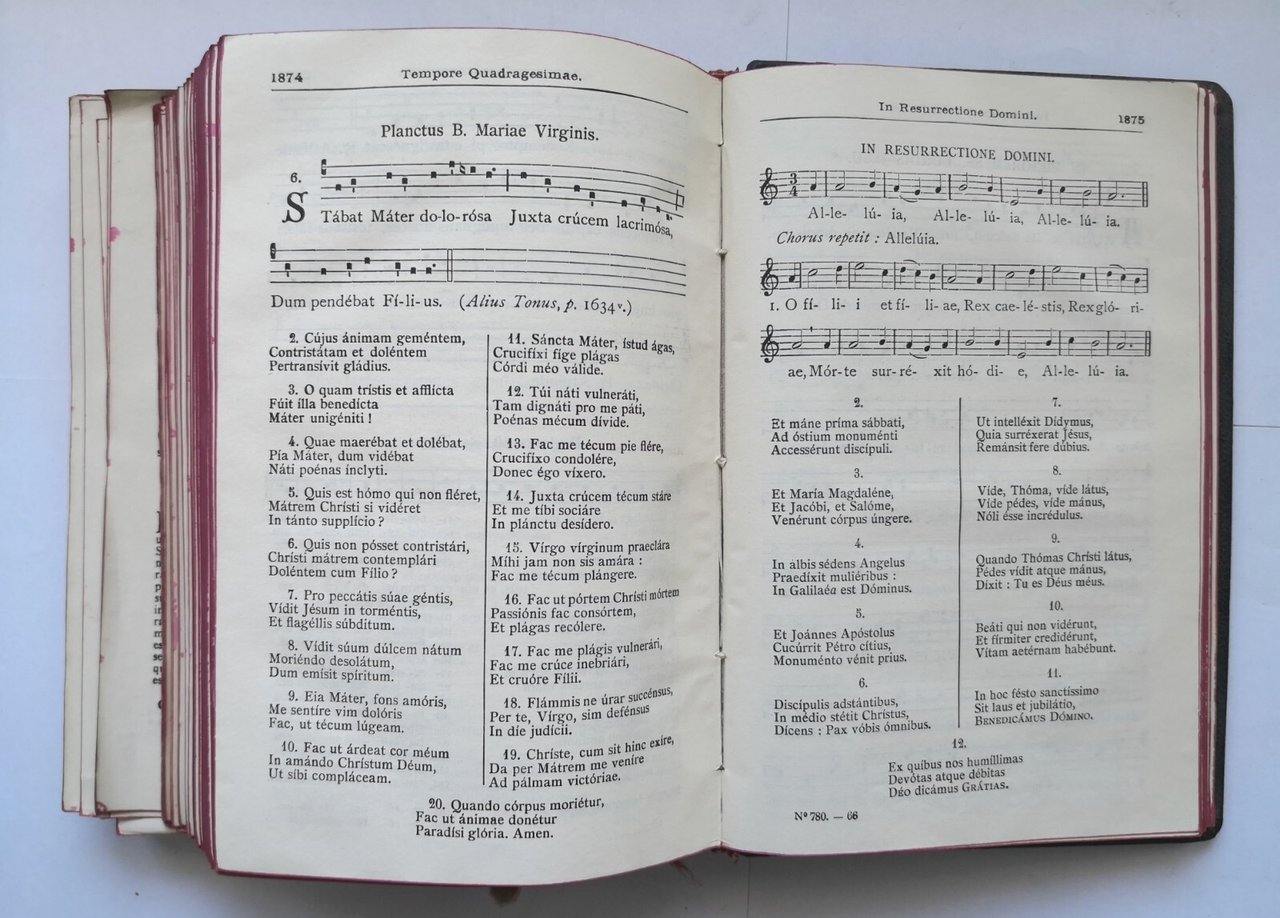 1874
Tempore Quadragesimae.
Planctus B. Mariae Virginis.
6.
STábat Máter do-lo-rósa Juxta crúcem lacrimósa,
Dum pendébat Fí-li-us. (Alius Tonus, p. 1634ᵛ.)
2. Cújus ánimam geméntem,
Contristátam et doléntem
Pertransívit gládius.
3. O quam trístis et afflícta
Fúit ílla benedícta
Máter unigéniti !
4. Quae maerébat et dolébat,
Pía Máter, dum vidébat
Náti poénas ínclyti.
5. Quis est hómo qui non fléret,
Mátrem Chrísti si vidéret
In tánto supplício ?
6. Quis non pósset contristári,
Chrísti mátrem contemplári
Doléntem cum Fílio ?
7. Pro peccátis súae géntis,
Vídit Jésum in torméntis,
Et flagéllis súbditum.
8. Vídit súum dúlcem nátum
Moriéndo desolátum,
Dum emísit spíritum.
9. Eia Máter, fons amóris,
Me sentíre vim dolóris
Fac, ut técum lúgeam.
10. Fac ut árdeat cor méum
In amándo Chrístum Déum,
Ut síbi compláceam.
11. Sáncta Máter, ístud ágas,
Crucifíxi fíge plágas
Córdi méo válide.
12. Túi náti vulneráti,
Tam dignáti pro me páti,
Poénas mécum dívide.
13. Fac me técum pie flére,
Crucifíxo condolére,
Donec égo víxero.
14. Juxta crúcem técum stáre
Et me tíbi sociáre
In plánctu desídero.
15. Vírgo vírginum praeclára
Míhi jam non sis amára :
Fac me técum plángere.
16. Fac ut pórtem Chrísti mórtem
Passiónis fac consórtem,
Et plágas recólere.
17. Fac me plágis vulnerári,
Fac me crúce inebriári,
Et cruóre Fílii.
18. Flámmis ne úrar succénsus,
Per te, Vírgo, sim defénsus
In díe judícii.
19. Chríste, cum sit hinc exíre,
Da per Mátrem me veníre
Ad pálmam victóriae.
20. Quando córpus moriétur,
Fac ut ánimae donétur
Paradísi glória. Amen.
In Resurrectione Domini.
1875
IN RESURRECTIONE DOMINI.
3
4
Al-le- lú- ia, Al-le- lú- ia, Al-le- lú- ia.
Chorus repetit : Allelúia.
1. O fí- li- i et fí- li- ae, Rex cae- lé- stis, Rex gló- ri-
ae, Mór- te sur- ré- xit hó- di- e, Al- le- lú- ia.
2.
Et máne príma sábbati,
Ad óstium monuménti
Accessérunt discípuli.
3.
Et María Magdaléne,
Et Jacóbi, et Salóme,
Venérunt córpus úngere.
4.
In albis sédens Angelus
Praedíxit muliéribus :
In Galilaéa est Dóminus.
5.
Et Joánnes Apóstolus
Cucúrrit Pétro cítius,
Monuménto vénit prius.
6.
Discípulis adstántibus,
In médio stétit Chrístus,
Dícens : Pax vóbis ómnibus.
7.
Ut intelléxit Dídymus,
Quia surréxerat Jésus,
Remánsit fere dúbius.
8.
Víde, Thóma, víde látus,
Víde pédes, víde mánus,
Nóli ésse incrédulus.
9.
Quando Thómas Chrísti látus,
Pédes vídit atque mánus,
Díxit : Tu es Déus méus.
10.
Beáti qui non vidérunt,
Et fírmiter credidérunt,
Vítam aetérnam habébunt.
11.
In hoc fésto sanctíssimo
Sit laus et jubilátio,
BENEDICÁMUS DÓMINO.
12.
Ex quíbus nos humíllimas
Devótas atque débitas
Déo dicámus GRÁTIAS.
Nº 780. — 66